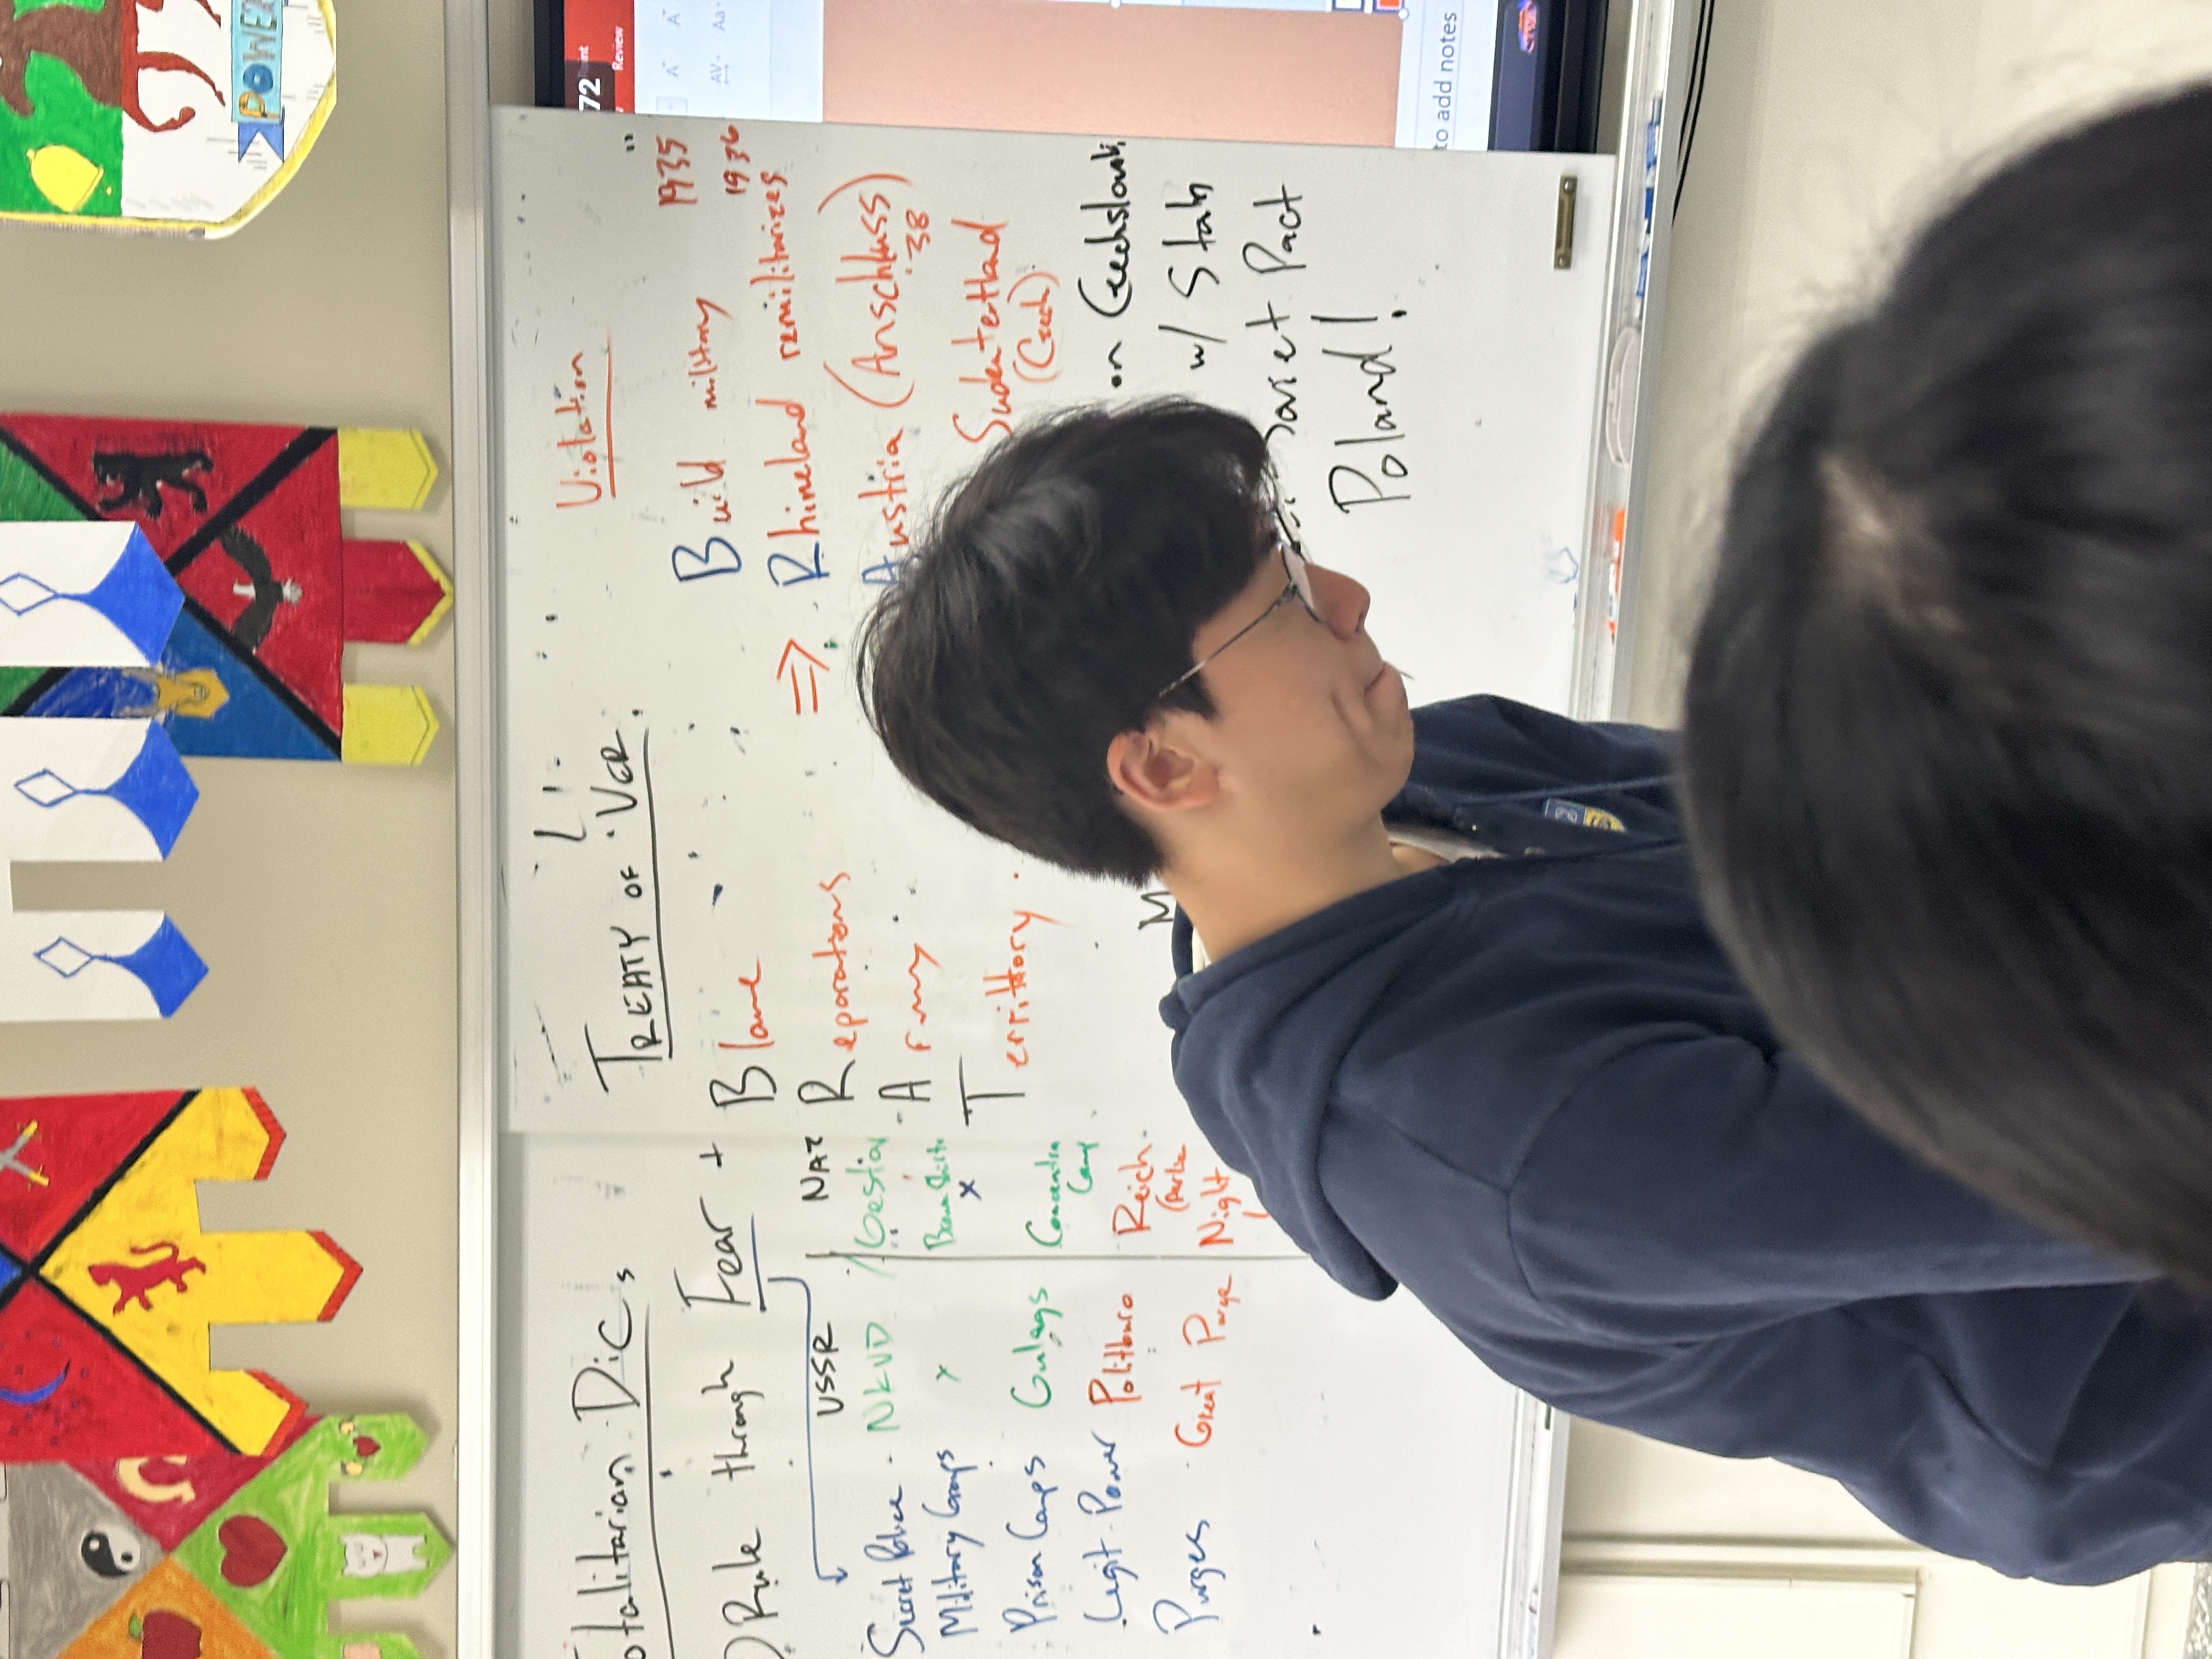 POWE
otalitarian Dic s
Rule through Fear +
USSR
NAZ
Secret Police - NKVD
Gesta
Military Groups x
Brown Shirts
x
Prison Camps Gulags
Concentra
Camp
Legit Power Politburo
Reich
Purges Great Purge
Night
TREATY OF VER.
Blame
Reparations
Army
Territtory
M
Violation
Build military 1935
Rhineland remilitarizes 1936
Austria (Anschluss)
'38
Sudentertland
(Czech)
on Czechslovaki
w/ Stalin
Soviet Pact
Poland!
72
Review
to add notes